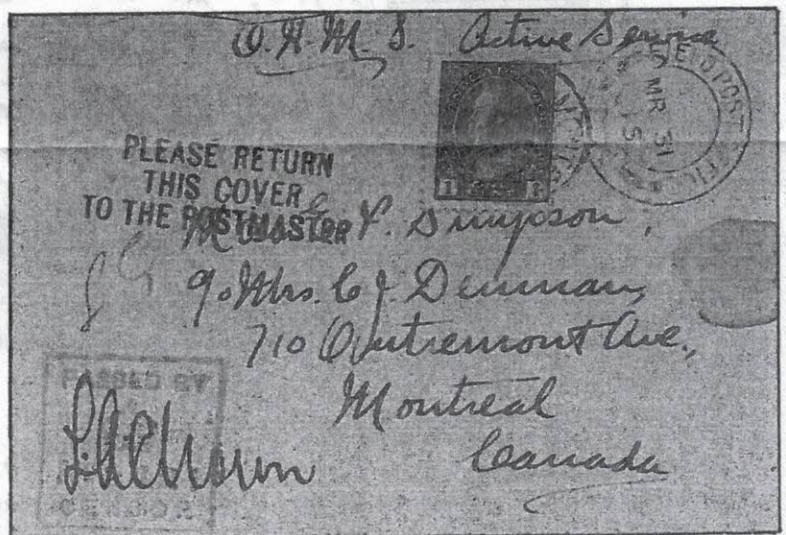 O.H.M.S. Active Service
FIELD POST
MR 31
PLEASE RETURN
THIS COVER
TO THE POSTMASTER
1 1
P. Simpson,
c/o Mrs. C. J. Denman,
710 Outremont Ave.,
Montreal
Canada
PASSED BY